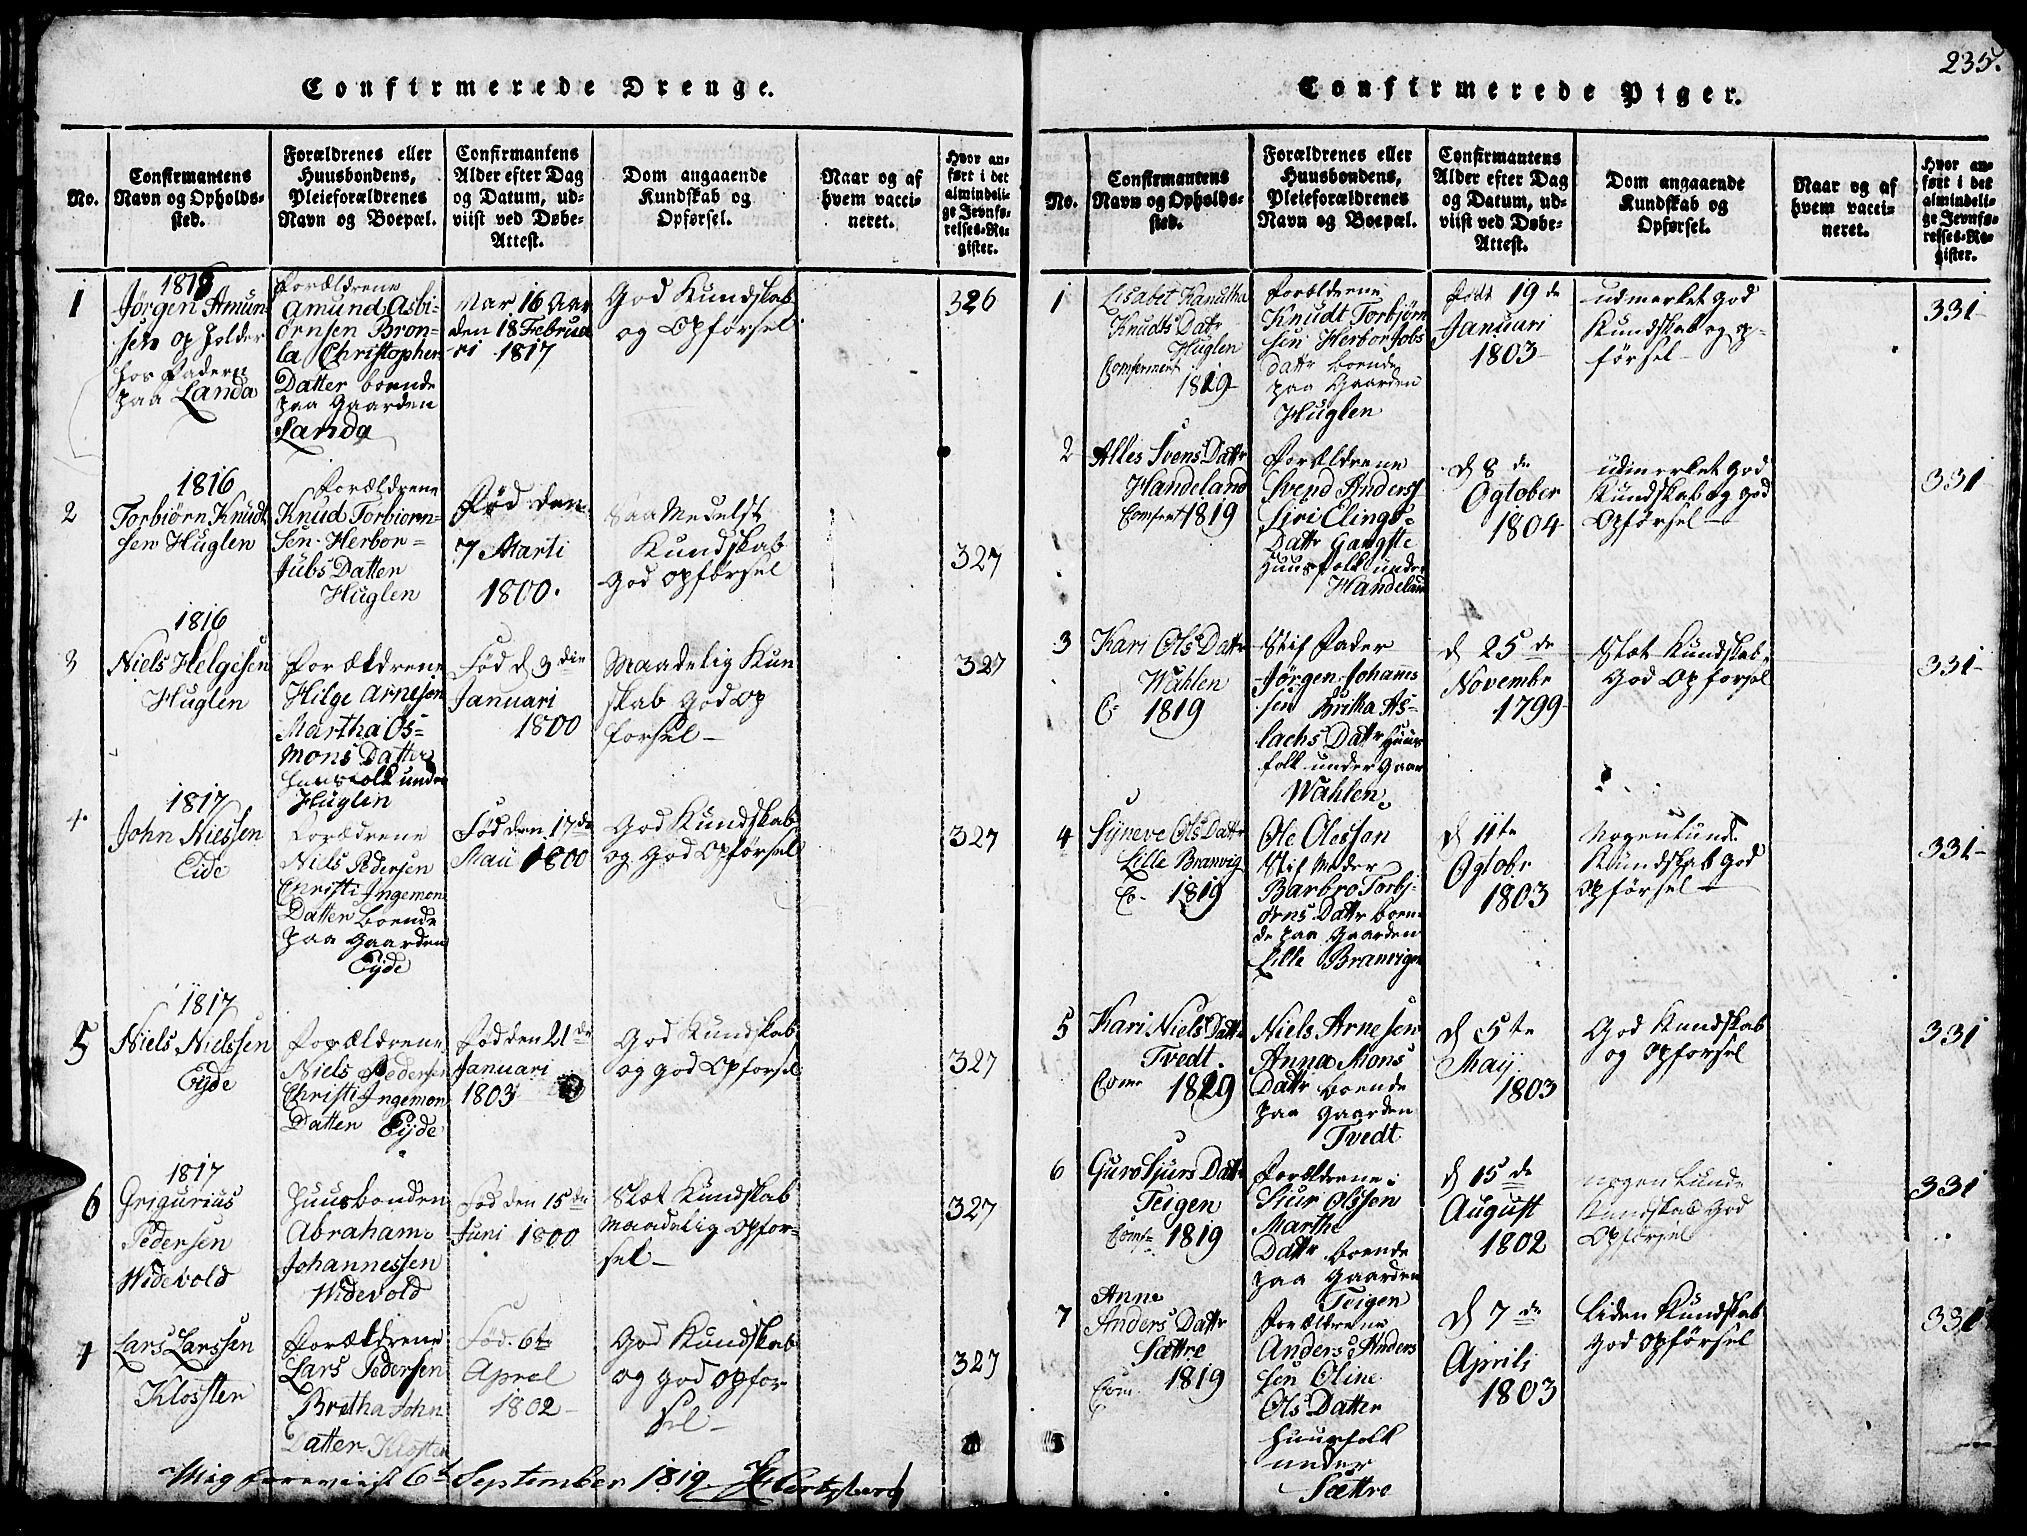 235.
Confirmerede Drenge.
No.
Confirmantens
Navn og Opholds-
sted.
Forældrenes eller
Huusbondens,
Pleieforældrenes
Navn og Boepæl.
Confirmantens
Alder efter Dag
og Datum, ud-
viist ved Døbe-
Attest.
Dom angaaende
Kundskab og
Opførsel.
Naar og af
hvem vacci-
neret.
Hvor an-
ført i det
almindeli-
ge Jevnfø-
relses-Re-
gister.
1
1816
Jørgen Amun-
sen op holder
hos Fadern
paa Landa
Forældrene
Amund Asbi-
ørnsen Bron-
la Christopher
Datter boende
paa Gaarden
Landa
Var 16 Aar
den 18 Februa
ri 1817
God Kundskab
og Opførsel
326
2
1816
Torbiørn Knudt
sen Huglen
Forældrene
Knud Torbiorn-
sen Herbor-
Jubs Datter
Huglen
Fød den
7 Marti
1800.
Saa Medelst
Kundskab
God Opførsel
327
3
1816
Niels Helgesen
Huglen
Forældrene
Hilge Arnesen
Martha Os-
mons Datter
Huusfolk under
Huglen
Fød d 3 die
Januari
1800
Maadelig Kun
skab God Op
forsel
327
4
1817
John Nielssen
Eide
Forældrene
Nils Pedersen
Christi Ingemon
Datter boende
paa Gaarden
Eyde
Fød den 17 de
Maii 1800
God Kundskab
og God Opførsel
327
5
1817
Niels Nielssen
Eyde
Forældrene
Niels Pedersen
Christi Ingemon
Datter Eyde
Fød den 21 de
Januari
1803
God Kundskab
og god Opforsel
327
6
1817
Grigurius
Pedersen
Widevold
Huusbonden
Abraham
Johannessen
Widevold
Fød den 15 de
Juni 1800
Slæt Kundskab
maadelig Opfor-
sel
327
7
Lars Larssen
Kloster
Forældrene
Lars Pedersen
Bretha John
Datter Kloster
Fød. 6te
Aprel
1802
God Kundskab
og god Opfor-
sel
327
Mig foreviist 6t September 1819 Hertzberg
Confirmerede Piger.
No.
Confirmantens
Navn og Opholds-
sted.
Forældrenes eller
Huusbondens,
Pleieforældrenes
Navn og Boepæl.
Confirmantens
Alder efter Dag
og Datum, ud-
viist ved Døbe-
Attest.
Dom angaaende
Kundskab og
Opførsel.
Naar og af
hvem vacci-
neret.
Hvor an-
ført i det
almindeli-
ge Jevnfø-
relses-Re-
gister.
1
Lisabet Kanutha
Knudts Datr
Huglen
Comferment
1819
Forælderne
Knudt Torbjørn
sen Herbor Jobs
datr boende
paa Gaarden
Huglen
Født 19 de
Januari
1803
udmerket God
Kundskab og op-
førsel
331
2
Alles Svens Dattr
Handeland
Comfert 1819
Forældrene
Svend Anders
Siri Elings-
Dattr Gangste
Huusfolk under
Handeland
d 8 de
Ogtober
1804
udmerket God
Kundskab og God
Opførsel
331
3
Kari Ols Dattr
Wahlen
C 1819
Stif Fader
Jørgen Johanns
sen Britha As-
lachs Dattr Huus
folk under Gaar
Wahlen
d 25 de
Novembr
1799
Slæt Kundskab
God Opforsel
331
4
Syneve Ols Dattr
Lille Branvig
Co 1819
Ole Olessøn
Stif Moder
Barbro Torbj-
ørns Dattr boen-
de paa Gaarden
Lille Branvigen
d 11te
Ogtobr
1803
nogenlunde
Kundskab God
Opførsel
331
5
Kari Niels Dattr
Tvedt
Come 1819
Niels Arnesen
Anna Mons
Dattr boende
paa Gaarden
Tvedt
d 5te
May
1803
God Kundskab
og Opforsel
331
6
Guro Sjurs Dattr
Teigen
Comf 1819
Forældrene
Siur Olssen
Marthe
Dattr boende
paa Gaarden
Teigen
d 15 de
August
1802
nogen lunde
Kundskab God
Opførsel
331
7
Anne
Anders Dattr
Sættre
Com 1819
Forældrene
Anders Anders
sen Oline
Ols Datter
Huusfolk
under
Sættre
d 7 de
Aprili
1803
liden Kundskab
God Opførsel
331